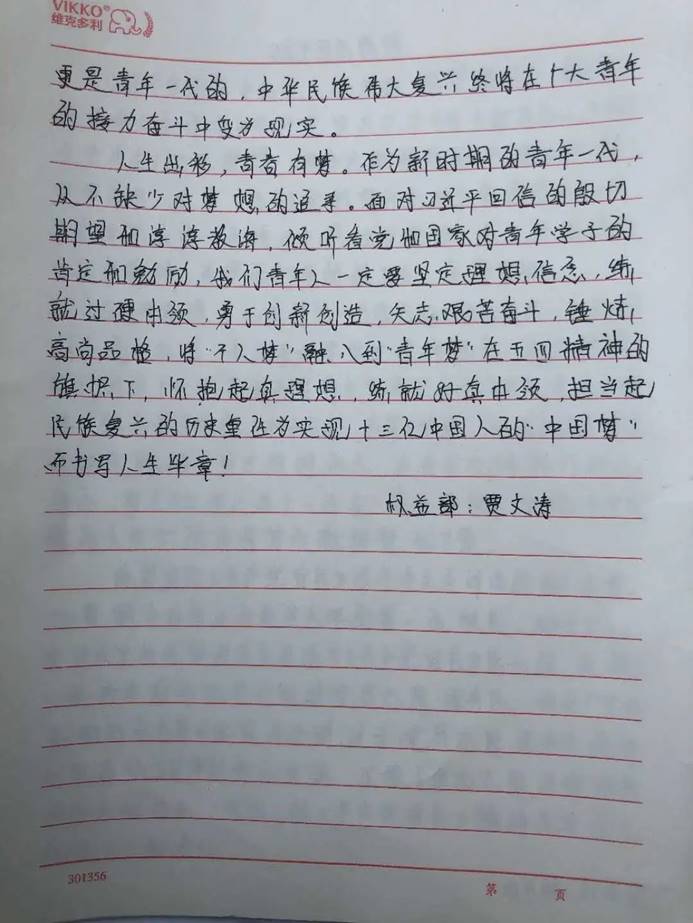 VIKKO®
维克多利
更是青年一代的，中华民族伟大复兴终将在广大青年
的接力奋斗中变为现实。
人生出彩，青春有梦。作为新时期的青年一代，
从不缺少对梦想的追寻。面对习近平回信的殷切
期望和谆谆教诲，倾听着党和国家对青年学子的
肯定和勉励，我们青年人一定要坚定理想信念，练
就过硬本领，勇于创新创造，矢志艰苦奋斗，锤炼
高尚品格，将“个人梦”融入到“青年梦”在五四精神的
旗帜下，怀抱起真理想，练就好真本领，担当起
民族复兴的历史重任为实现十三亿中国人的“中国梦”
而书写人生华章！
权益部：贾文涛
301356
第 页